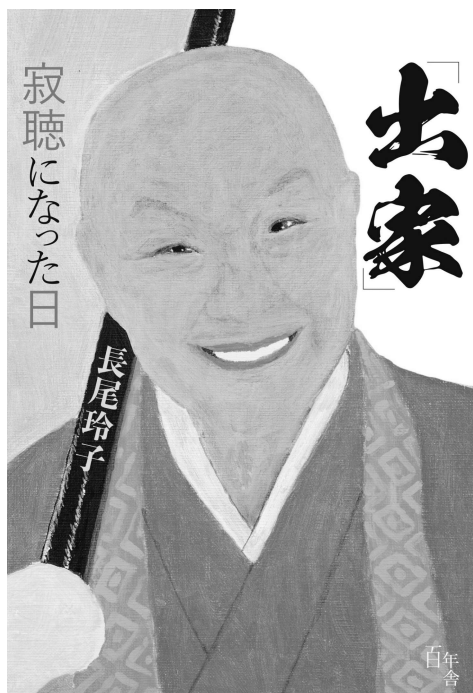 「出家」
寂聴になった日
長尾玲子
百年舎